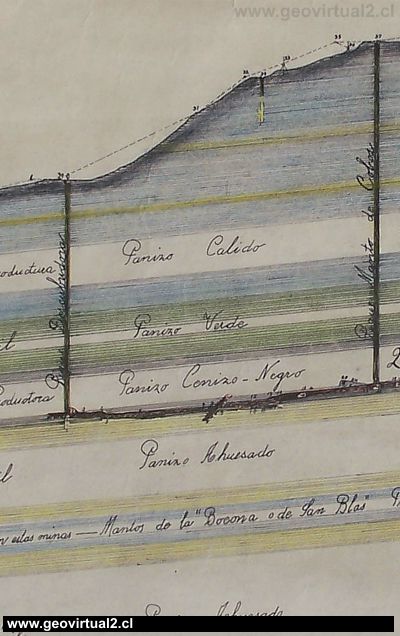 www.geovirtual2.cl
35
37
33
31
Panizo Calido
oductura
Pique Manto de Cobre
Panizo Verde
Panizo Cenizo-Negro
oductora
2
Panizo Ahuesado
en estas minas — Mantos de la "Bocona o de San Blas"
Panizo Ahuesado
www.geovirtual2.cl